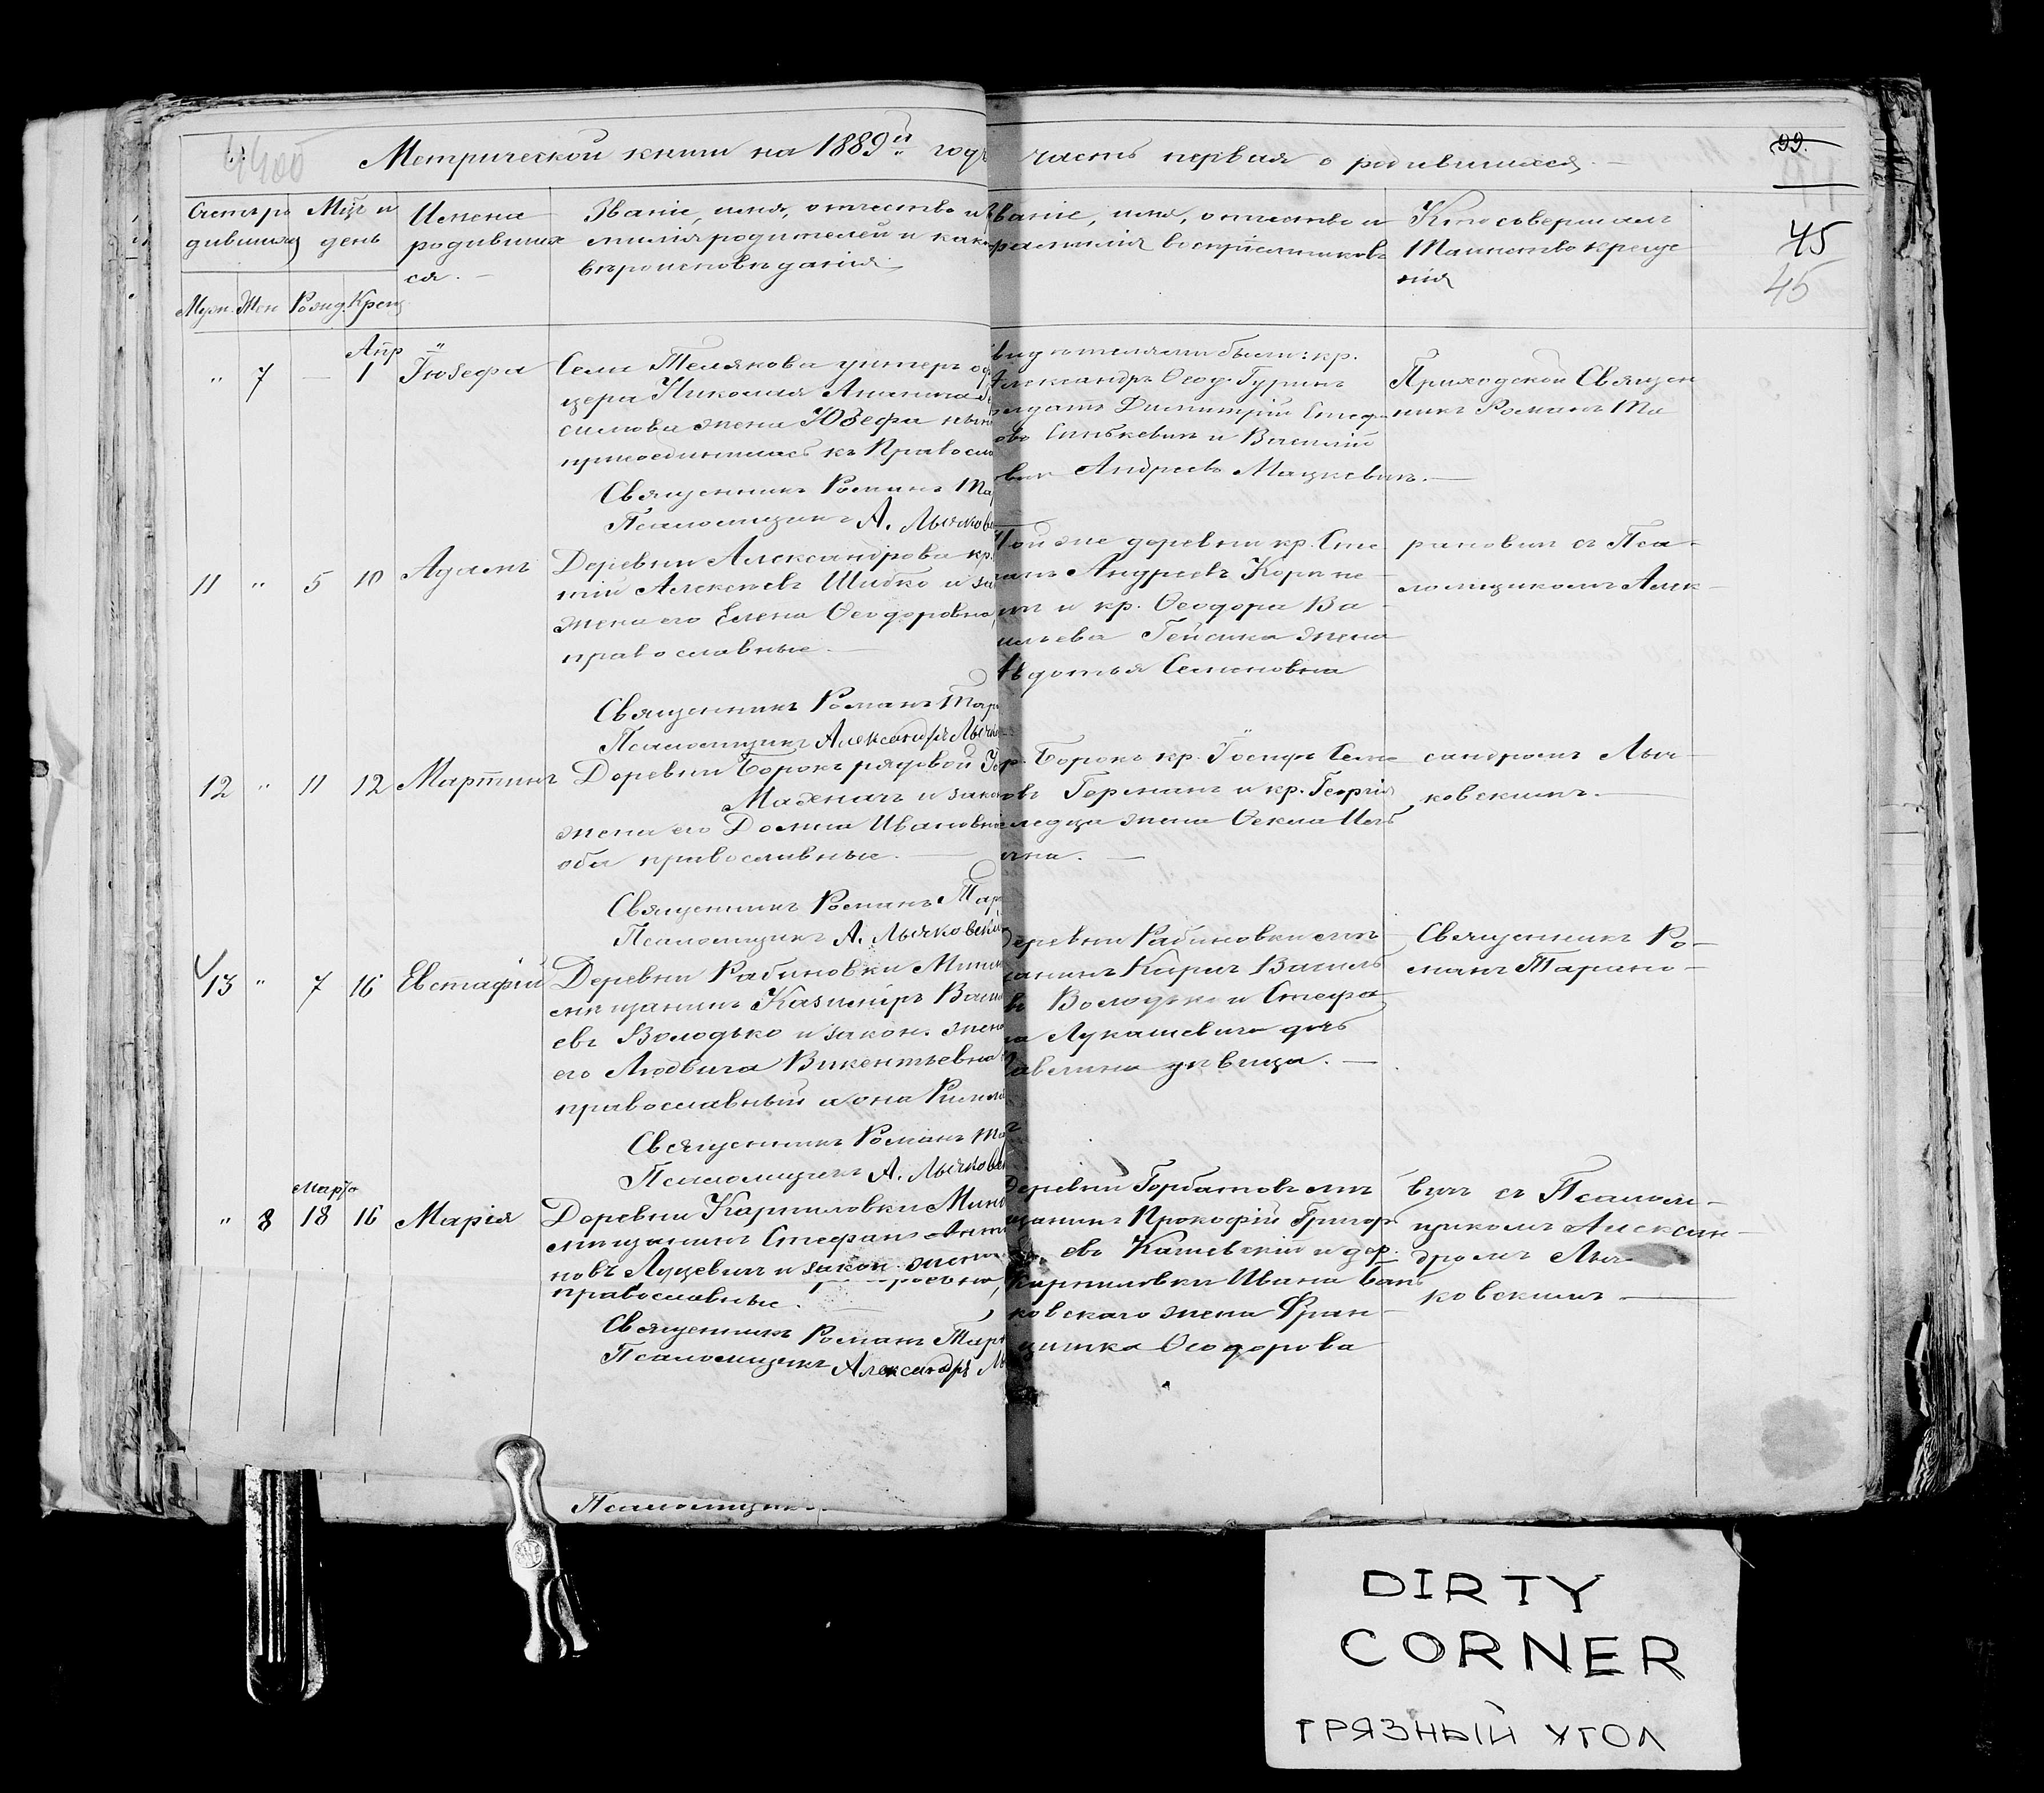 Метрической книги на 1889й годъ часть первая о родившихся.
99.
45
45
Счетъ ро
дившихся
Муж. Жен
Мцъ и
день
Рожд. Крещ
Имена
родивших
ся.
Званіе, имя, отчество и
милія родителей и како
вѣроисповѣданія.
званіе, имя, отчество и
фамилія воспріемниковъ
Кто совершалъ
Таинство креще
нія
Апр
" 7 — 1 Іюзефа
Села Телякова унтеръ оф
цера Николая Ананіева
силова жена Юзефа нын
присоединилась къ Правосла
Священникъ Романъ Та
Псаломщикъ А. Лычковс
видѣтелями были: кр.
Александръ Ѳеод. Гуринъ
солдатъ Димитрій Стеф
овъ Синкевичъ и Василій
Андреевъ Мацкевичъ.
Приходской Священ
никъ Романъ Та
11 " 5 10 Адамъ
Деревни Александрова кр.
тій Алексѣевъ Шидко и за
жена его Елена Ѳеодоровна,
православные.
Священникъ Романъ Тара
Псаломщикъ Александръ Лыч
Той же деревни кр. Сте
панъ Андреевъ Корне
и кр. Ѳеодора Ва
сильева Гейсика жена
Авдотья Семеновна
рановичъ съ Пса
ломщикомъ Алек
12 " 11 12 Мартинъ
Деревни Борокъ рядовой
и закон
жена его Домна Ивановна
оба православные.
Священникъ Романъ Тар
Псаломщикъ А. Лычковскій
Борокъ кр. Іосифъ Семе
овъ Германъ и кр. Георгія
жена Ѳекла Иль
ична.
сандромъ Лыч
ковскимъ.
13 " 7 16 Евстафій
Деревни Рабиновки Минск
мѣщанинъ Казиміръ Васил
евъ Володько и закон. жена
его Людвига Викентьевна
православный а она Римско
Священникъ Романъ Та
Псаломщикъ А. Лычковск
Деревни Рабиновки мѣ
щанинъ Кирилъ Василь
въ Володько и Стефа
на Лукашевича дочь
Павелина дѣвица.
Священникъ Ро
манъ Тарано
Марта
" 8 18 16 Марія
Деревни Карпиловки Минс
мѣщанинъ Стефанъ Анто
новъ Луцевичъ и закон. жена
православные.
Священникъ Романъ Тара
Псаломщикъ Александръ Лы
Деревни Горбатовъ мѣ
щанинъ Прокофій Григорь
евъ Кашевскій и дер.
Карпиловки Ивана Бань
ковскаго жена Фран
цишка Ѳеодорова
вичъ съ Псалом
щикомъ Алексан
дромъ Лыч
ковскимъ
Псаломщик
DIRTY
CORNER
ГРЯЗНЫЙ УГОЛ